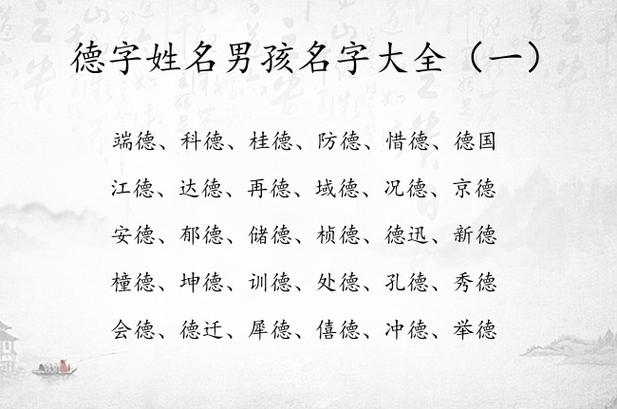 德字姓名男孩名字大全（一）
端德、科德、桂德、防德、惜德、德国
江德、达德、再德、域德、况德、京德
安德、郁德、储德、桢德、德迅、新德
橦德、坤德、训德、处德、孔德、秀德
会德、德迁、犀德、僖德、冲德、举德